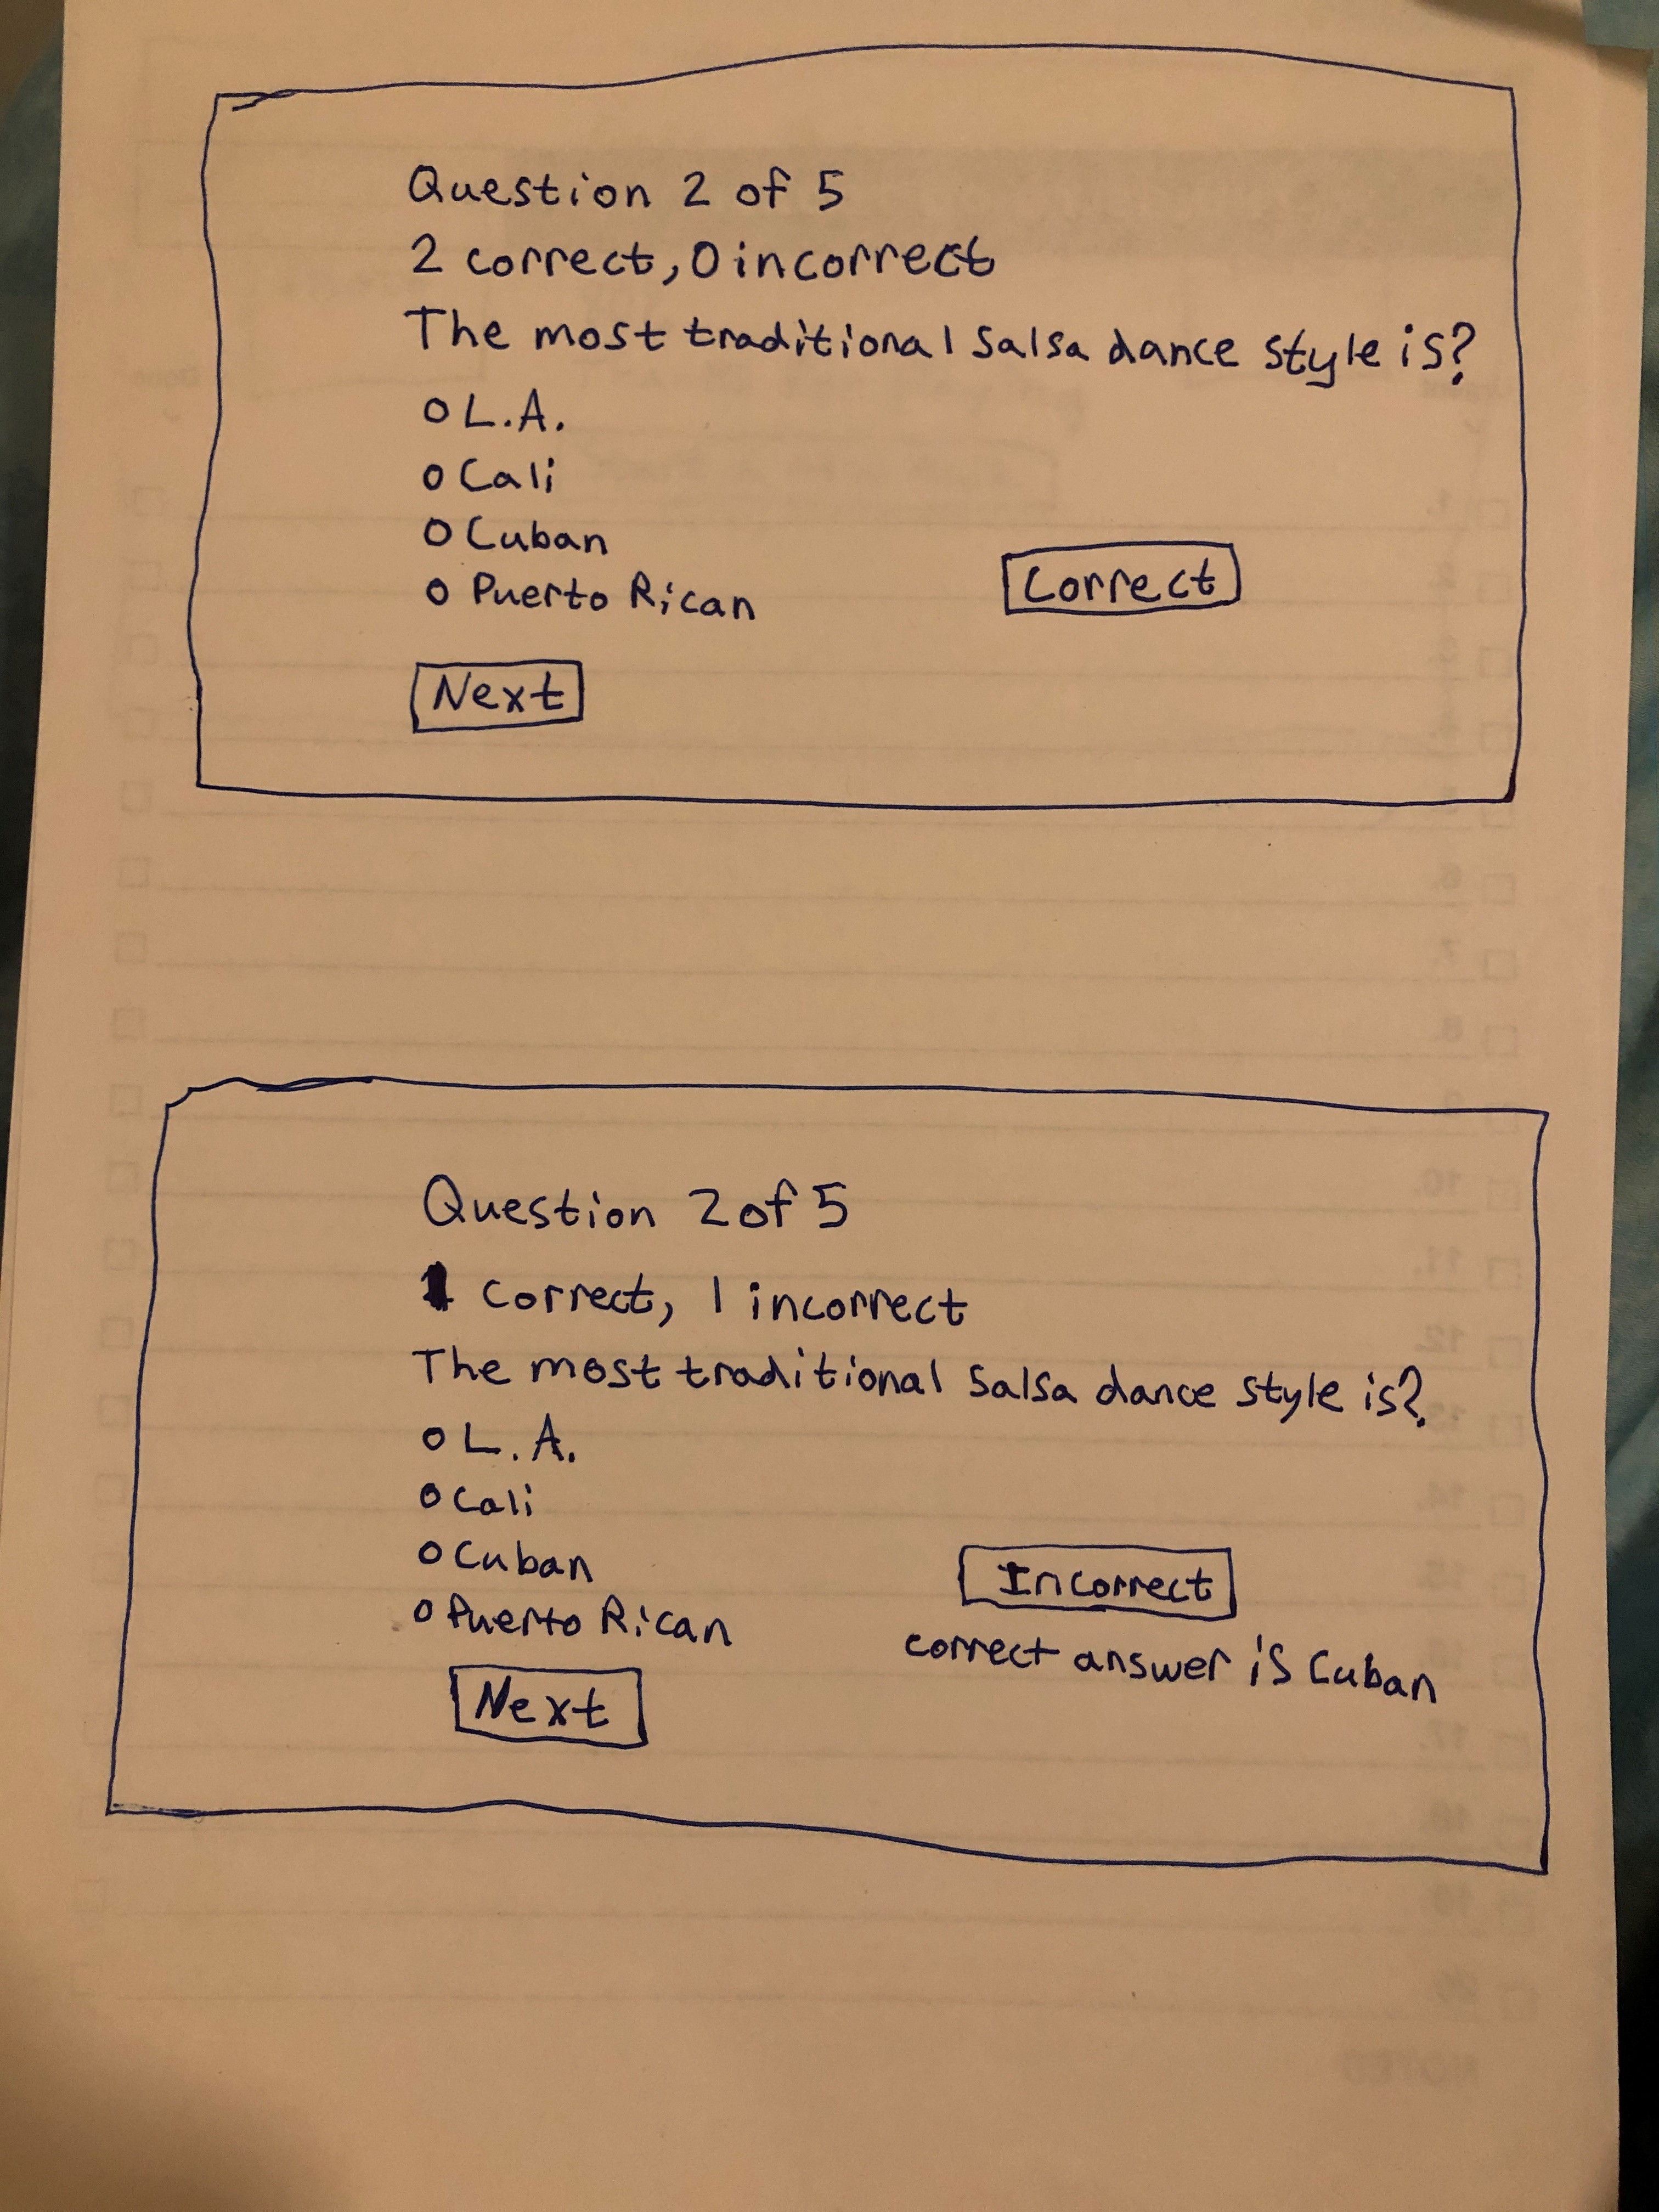 Question 2 of 5
2 correct, 0 incorrect
The most traditional salsa dance style is?
L.A.
Cali
Cuban
Puerto Rican
Correct
Next
Question 2 of 5
1 correct, 1 incorrect
The most traditional salsa dance style is?
L.A.
Cali
Cuban
Puerto Rican
Incorrect
correct answer is Cuban
Next